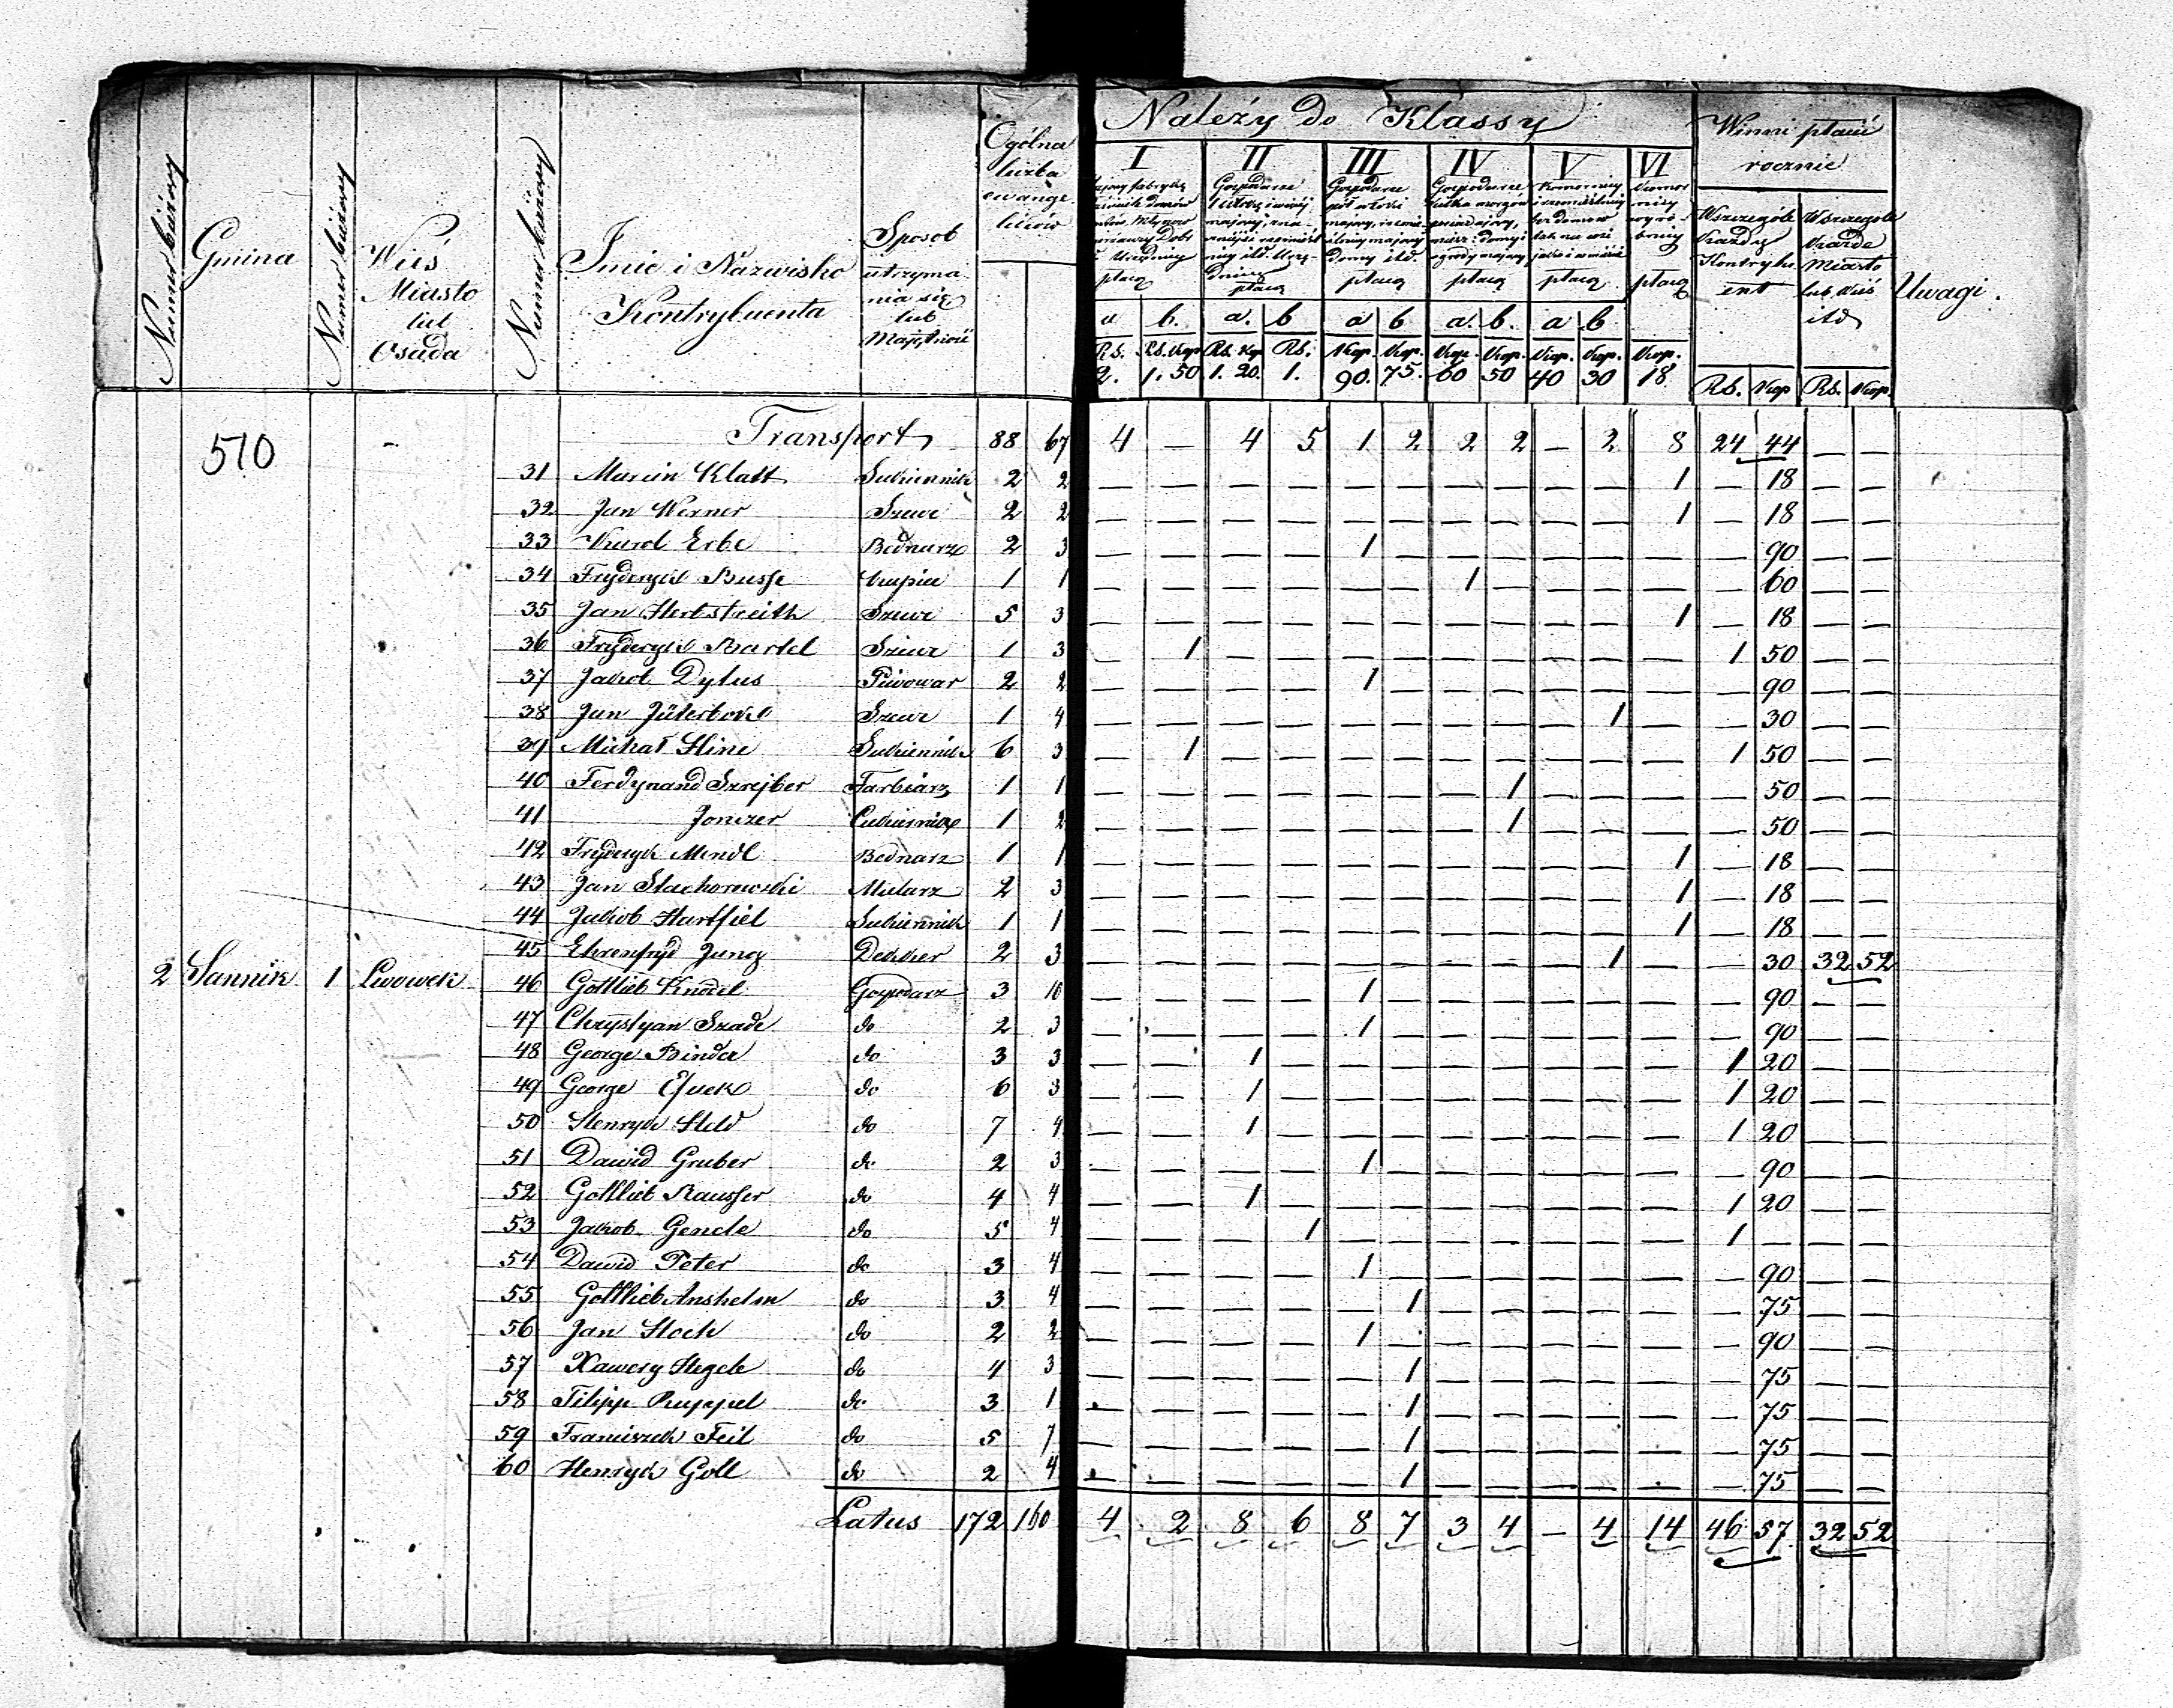 Numer bieżący
Gmina
Numer bieżący
Wieś
Miasto
lub
Osada
Numer bieżący
Imie i Nazwisko
Kontrybuenta
Sposob
utrzyma
nia się
lub
Majętność
Ogólna
liczba
ewange
lików
Należy do Klassy
I
płacą
II
Gospodarze
płacą
III
Gospodarze
płacą
IV
Gospodarze
płacą
V
Komornicy
płacą
VI
płacą
a b. a. b a b a. b. a b
Rs. Rs. Kop Rs. Kop Rs. Kop. Kop. Kop. Kop. Kop. Kop. Kop.
2. 1. 50 1. 20. 1. 90. 75. 60 50 40 30 18
Winni płacić
rocznie
Wszczególe
Każdy
Kontrybu
ent
Rs. Kop
Wszczególe
Każde
Miasto
lub Wieś
itd
Rs. Kop.
Uwagi.
510 — Transport 88 67 4 — 4 5 1 2 2 2 — 2 8 24 44 — —
31 Marcin Klatt Sukiennik 2 2 — — — — — — — — — — 1 — 18 — —
32 Jan Werner Szewc 2 2 — — — — — — — — — — 1 — 18 — —
33 Karol Erbe Bednarz 2 3 — — — — 1 — — — — — — — 90 — —
34 Fryderyk Busse Kupiec 1 1 — — — — — — 1 — — — — — 60 — —
35 Jan Herbstreith Szewc 5 3 — — — — — — — — — — 1 — 18 — —
36 Fryderyk Bartel Szewc 1 3 — 1 — — — — — — — — — 1 50 — —
37 Jakob Dylus Piwowar 2 2 — — — — 1 — — — — — — — 90 — —
38 Jan Jüterbock Szewc 1 4 — — — — — — — — — 1 — — 30 — —
39 Michał Hine Sukiennik 6 3 — 1 — — — — — — — — — 1 50 — —
40 Ferdynand Szrejber Farbiarz 1 1 — — — — — — — 1 — — — — 50 — —
41 Jonczer Cukiernik 1 2 — — — — — — — 1 — — — — 50 — —
42 Fryderyk Mendl Bednarz 1 1 — — — — — — — — — — 1 — 18 — —
43 Jan Stachorowski Mularz 2 3 — — — — — — — — — — 1 — 18 — —
44 Jakob Hartfiel Sukiennik 1 1 — — — — — — — — — — 1 — 18 — —
45 Ehrenfryd Jung Dekker 2 3 — — — — — — — — — 1 — — 30 32 52
2 Sannik 1 Lwowek 46 Gottlieb Knodel Gospodarz 3 10 — — — — 1 — — — — — — — 90 — —
47 Chrystyan Szade do 2 3 — — — — 1 — — — — — — — 90 — —
48 George Binder do 3 3 — — 1 — — — — — — — — 1 20 — —
49 George do 6 3 — — 1 — — — — — — — — 1 20 — —
50 Henryk Held do 7 4 — — 1 — — — — — — — — 1 20 — —
51 Dawid Gruber do 2 3 — — — — 1 — — — — — — — 90 — —
52 Gottlieb Rausser do 4 4 — — 1 — — — — — — — — 1 20 — —
53 Jakob Gencle do 5 4 — — — 1 — — — — — — — 1 — — —
54 Dawid Peter do 3 4 — — — — 1 — — — — — — — 90 — —
55 Gottlieb Anshelm do 3 4 — — — — — 1 — — — — — — 75 — —
56 Jan Hock do 2 2 — — — — 1 — — — — — — — 90 — —
57 Xawery Hegele do 4 3 — — — — — 1 — — — — — — 75 — —
58 Filipp Ruppel do 3 1 — — — — — 1 — — — — — — 75 — —
59 Franciszek Feil do 5 7 — — — — — 1 — — — — — — 75 — —
60 Henryk Goll do 2 4 — — — — — 1 — — — — — — 75 — —
Latus 172 160 4 2 8 6 8 7 3 4 — 4 14 46 57 32 52